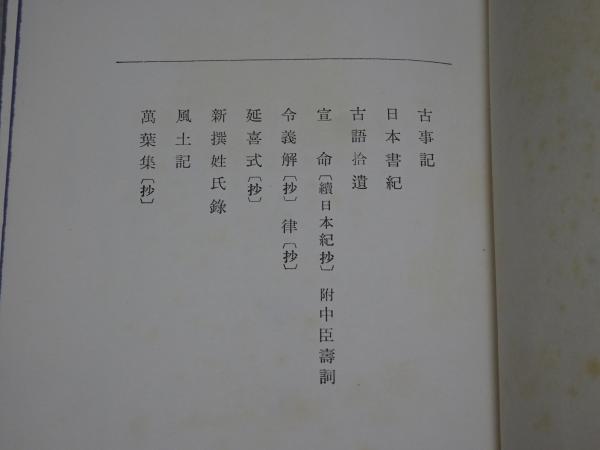 古事記
日本書紀
古語拾遺
宣命〔續日本紀抄〕附中臣壽詞
令義解〔抄〕律〔抄〕
延喜式〔抄〕
新撰姓氏錄
風土記
萬葉集〔抄〕